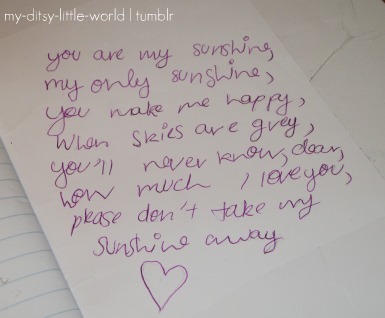 my-ditsy-little-world | tumblr
you are my sunshine,
my only sunshine,
you make me happy,
when skies are grey,
you'll never know, dear,
how much I love you,
please don't take my
sunshine away